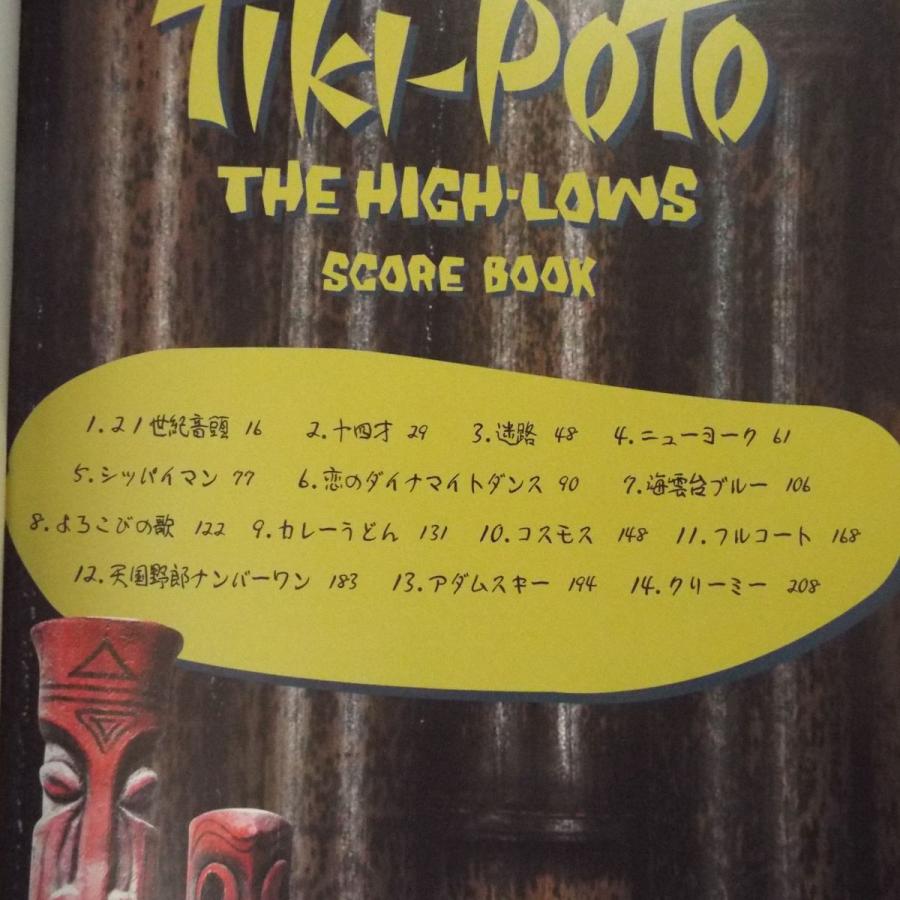 Tiki-Poto
THE HIGH-LOWS
SCORE BOOK
1.21世紀音頭 16 2.十四才 29 3.迷路 48 4.ニューヨーク 61
5.シッパイマン 77 6.恋のダイナマイトダンス 90 7.海雲台ブルー 106
8.よろこびの歌 122 9.カレーうどん 131 10.コスモス 148 11.フルコート 168
12.天国野郎ナンバーワン 183 13.アダムスキー 194 14.クリーミー 208